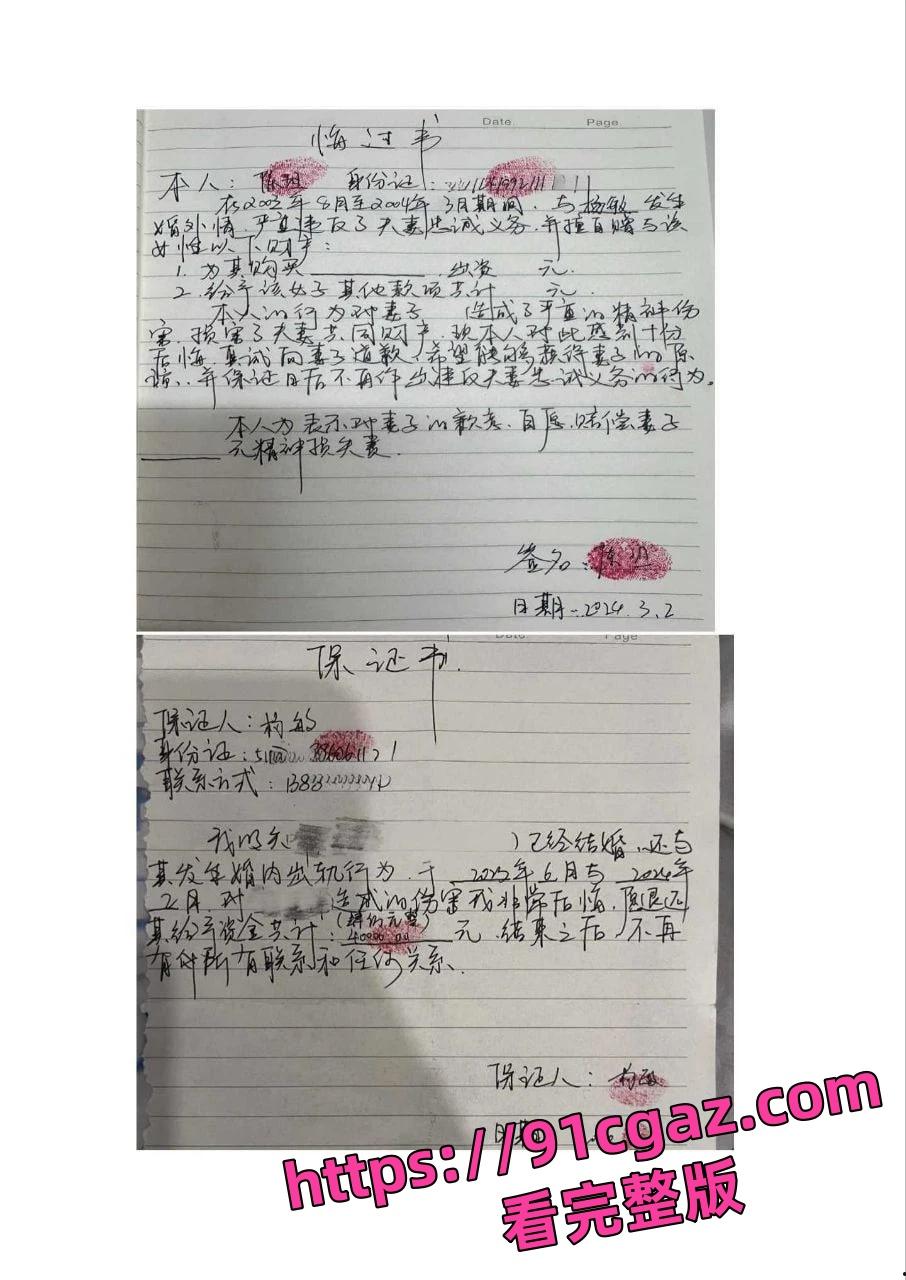 Date. Page.
悔过书
本人: 身份证:
在2023年8月至2024年3月期间,与杨敏发生
婚外情,严重违反了夫妻忠诚义务,并擅自赠与该
女性以下财产:
1. 为其购买 ,出资 元.
2. 给予该女子其他款项共计 元.
本人的行为对妻子 造成了严重的精神伤
害,损害了夫妻共同财产,现本人对此感到十分
后悔,真诚向妻子道歉,希望能够获得妻子的原
谅,并保证日后不再作出违反夫妻忠诚义务的行为。
本人为表示对妻子的歉意,自愿赔偿妻子
元精神损失费.
签名:
日期:2024.3.2
Date Page
保证书.
保证人:杨敏
身份证:
联系方式:
我明知 已经结婚,还与
其发生婚内出轨行为,于 年6月与2024年
2月对 造成的伤害我非常后悔,愿退还
其给予资金共计: 40000.00 元,结束之后,不再
有任何关系.
保证人:
日期
https://91cgaz.com
看完整版